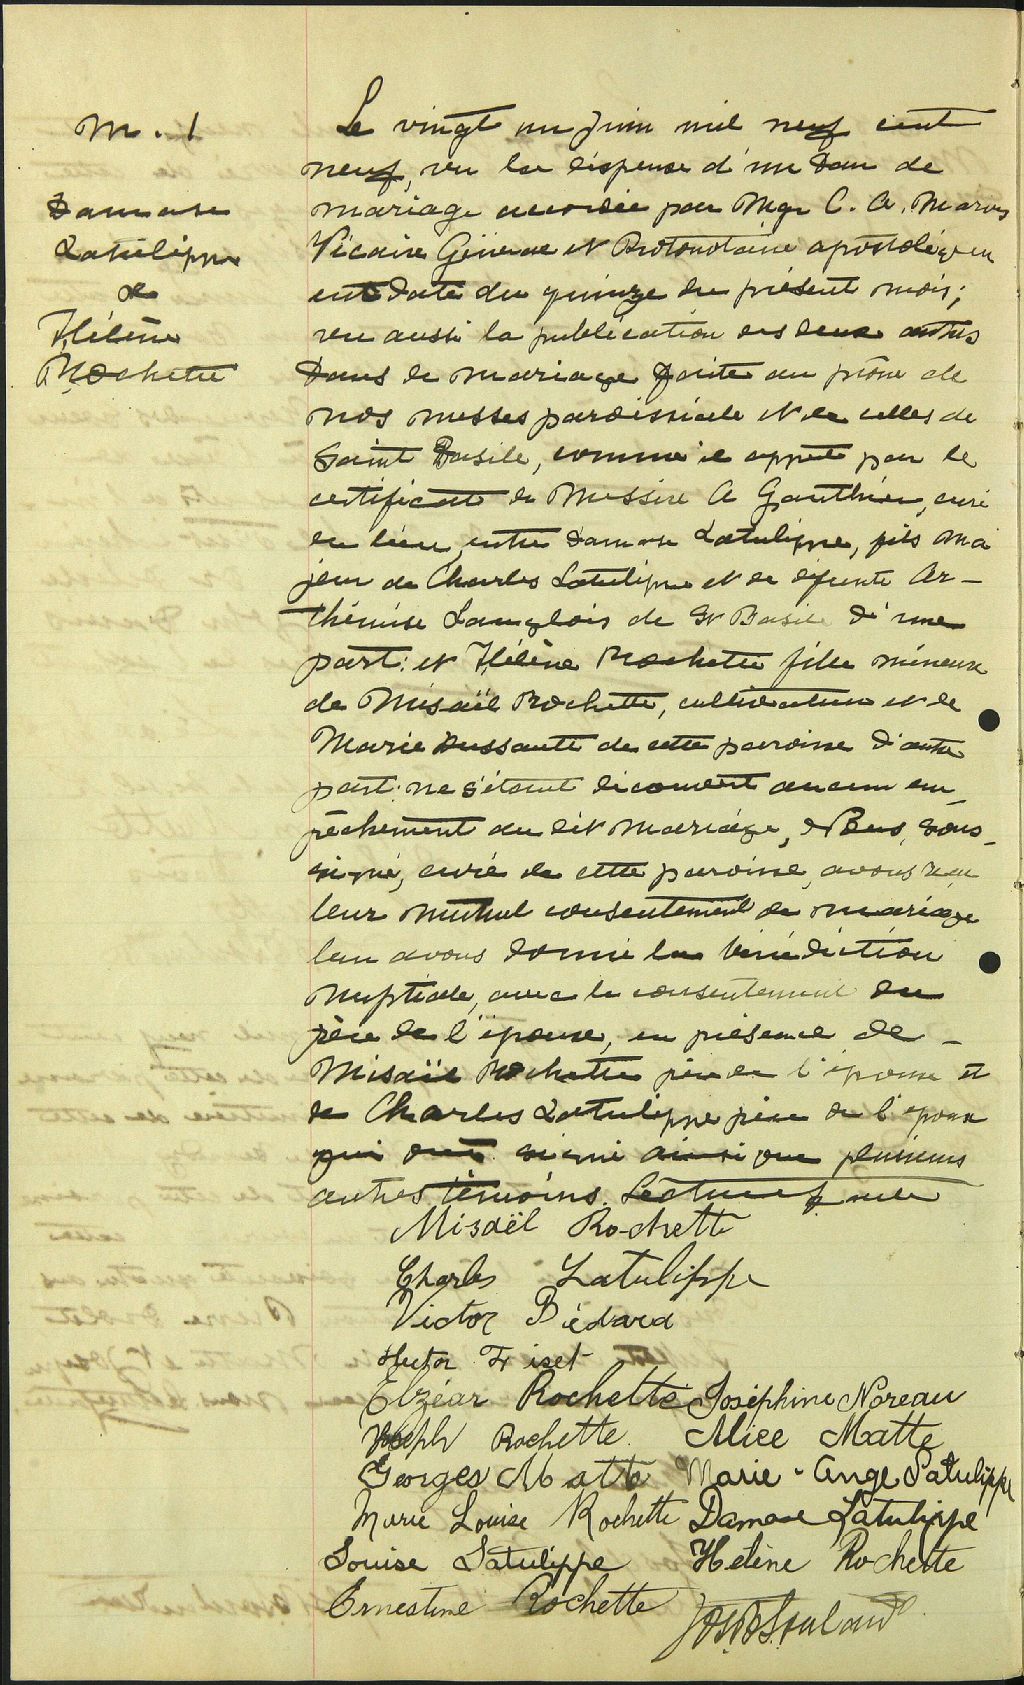 M. 1
Damase
Latulippe
&
Hélène
Rochette
Le vingt un Juin mil neuf cent
neuf, vu la dispense d'un ban de
mariage accordée par Mgr C. A. Marois
Vicaire Général et Protonotaire apostolique en
en date du quinze du présent mois;
vu aussi la publication des deux autres
bans de mariage faite au prône de
nos messes paroissiale et de celles de
Saint Basile, comme il appert par le
certificat de Messire A Gauthier, curé
du lieu, entre Damase Latulippe, fils ma
jeur de Charles Latulippe et de défunte Ar-
thémise Langlois de St Basile d'une
part; et Hélène Rochette fille mineure
de Misaël Rochette, cultivateur et de
Marie Dussault de cette paroisse d'autre
part; ne s'étant découvert aucun em-
pêchement au dit mariage, Nous, sous-
signé, curé de cette paroisse, avons reçu
leur mutuel consentement de mariage
leur avons donné la bénédiction
nuptiale, avec le consentement du
père de l'épouse, en présence de -
Misaël Rochette père de l'épouse et
de Charles Latulippe père de l'époux
qui ont signé ainsi que plusieurs
autres témoins. Lecture f
Misaël Rochette
Charles Latulippe
Victor Bédard
Hector Friset
Elzéar Rochette Joséphine Noreau
Joseph Rochette. Alice Matte
Georges Matte Marie-Ange Latulippe
Marie Louise Rochette Damase Latulippe
Louise Latulippe Hélène Rochette
Ernestine Rochette